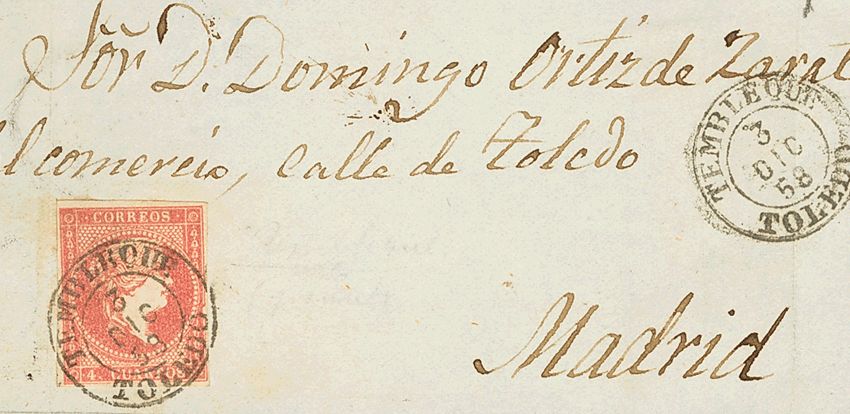 Sõr D. Domingo Ortiz de Zarat
TEMBLEQUE
3
DIC
58
TOLEDO
el comercio, Calle de Toledo
CORREOS
TEMBLEQUE
3
DIC
58
TOLEDO
4 CUARTOS
Madrid